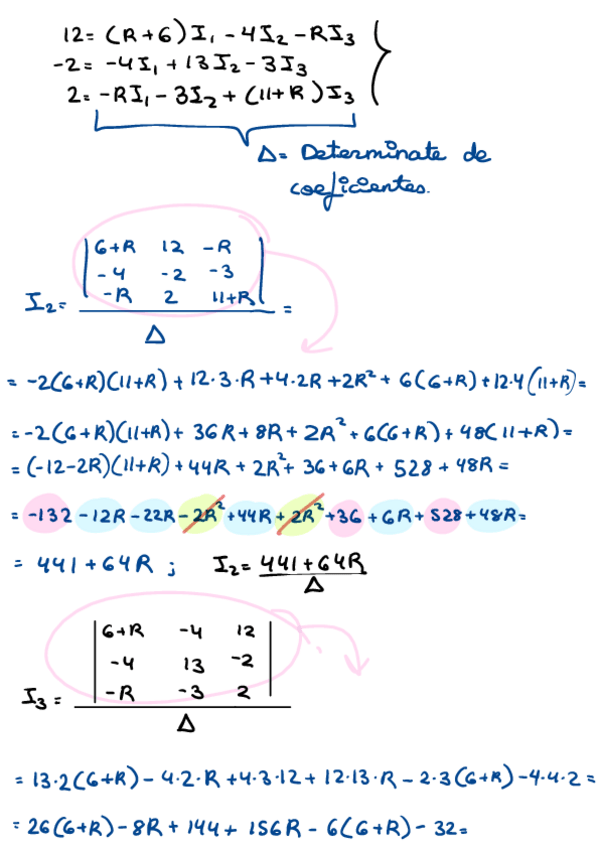 12 = (R+6)I₁ - 4I₂ - RI₃
-2 = -4I₁ + 13I₂ - 3I₃
2 = -RI₁ - 3I₂ + (11+R)I₃
Δ = Determinate de
coeficientes.
6+R 12 -R
-4 -2 -3
I₂ = -R 2 11+R =
Δ
= -2(6+R)(11+R) + 12·3·R + 4·2R + 2R² + 6(6+R) + 12·4(11+R) =
= -2(6+R)(11+R) + 36R + 8R + 2R² + 6(6+R) + 48(11+R) =
= (-12-2R)(11+R) + 44R + 2R² + 36 + 6R + 528 + 48R =
= -132 - 12R - 22R - 2R² + 44R + 2R² + 36 + 6R + 528 + 48R =
= 441 + 64R ; I₂ = 441 + 64R
Δ
6+R -4 12
-4 13 -2
I₃ = -R -3 2
Δ
= 13·2(6+R) - 4·2·R + 4·3·12 + 12·13·R - 2·3(6+R) - 4·4·2 =
= 26(6+R) - 8R + 144 + 156R - 6(6+R) - 32 =